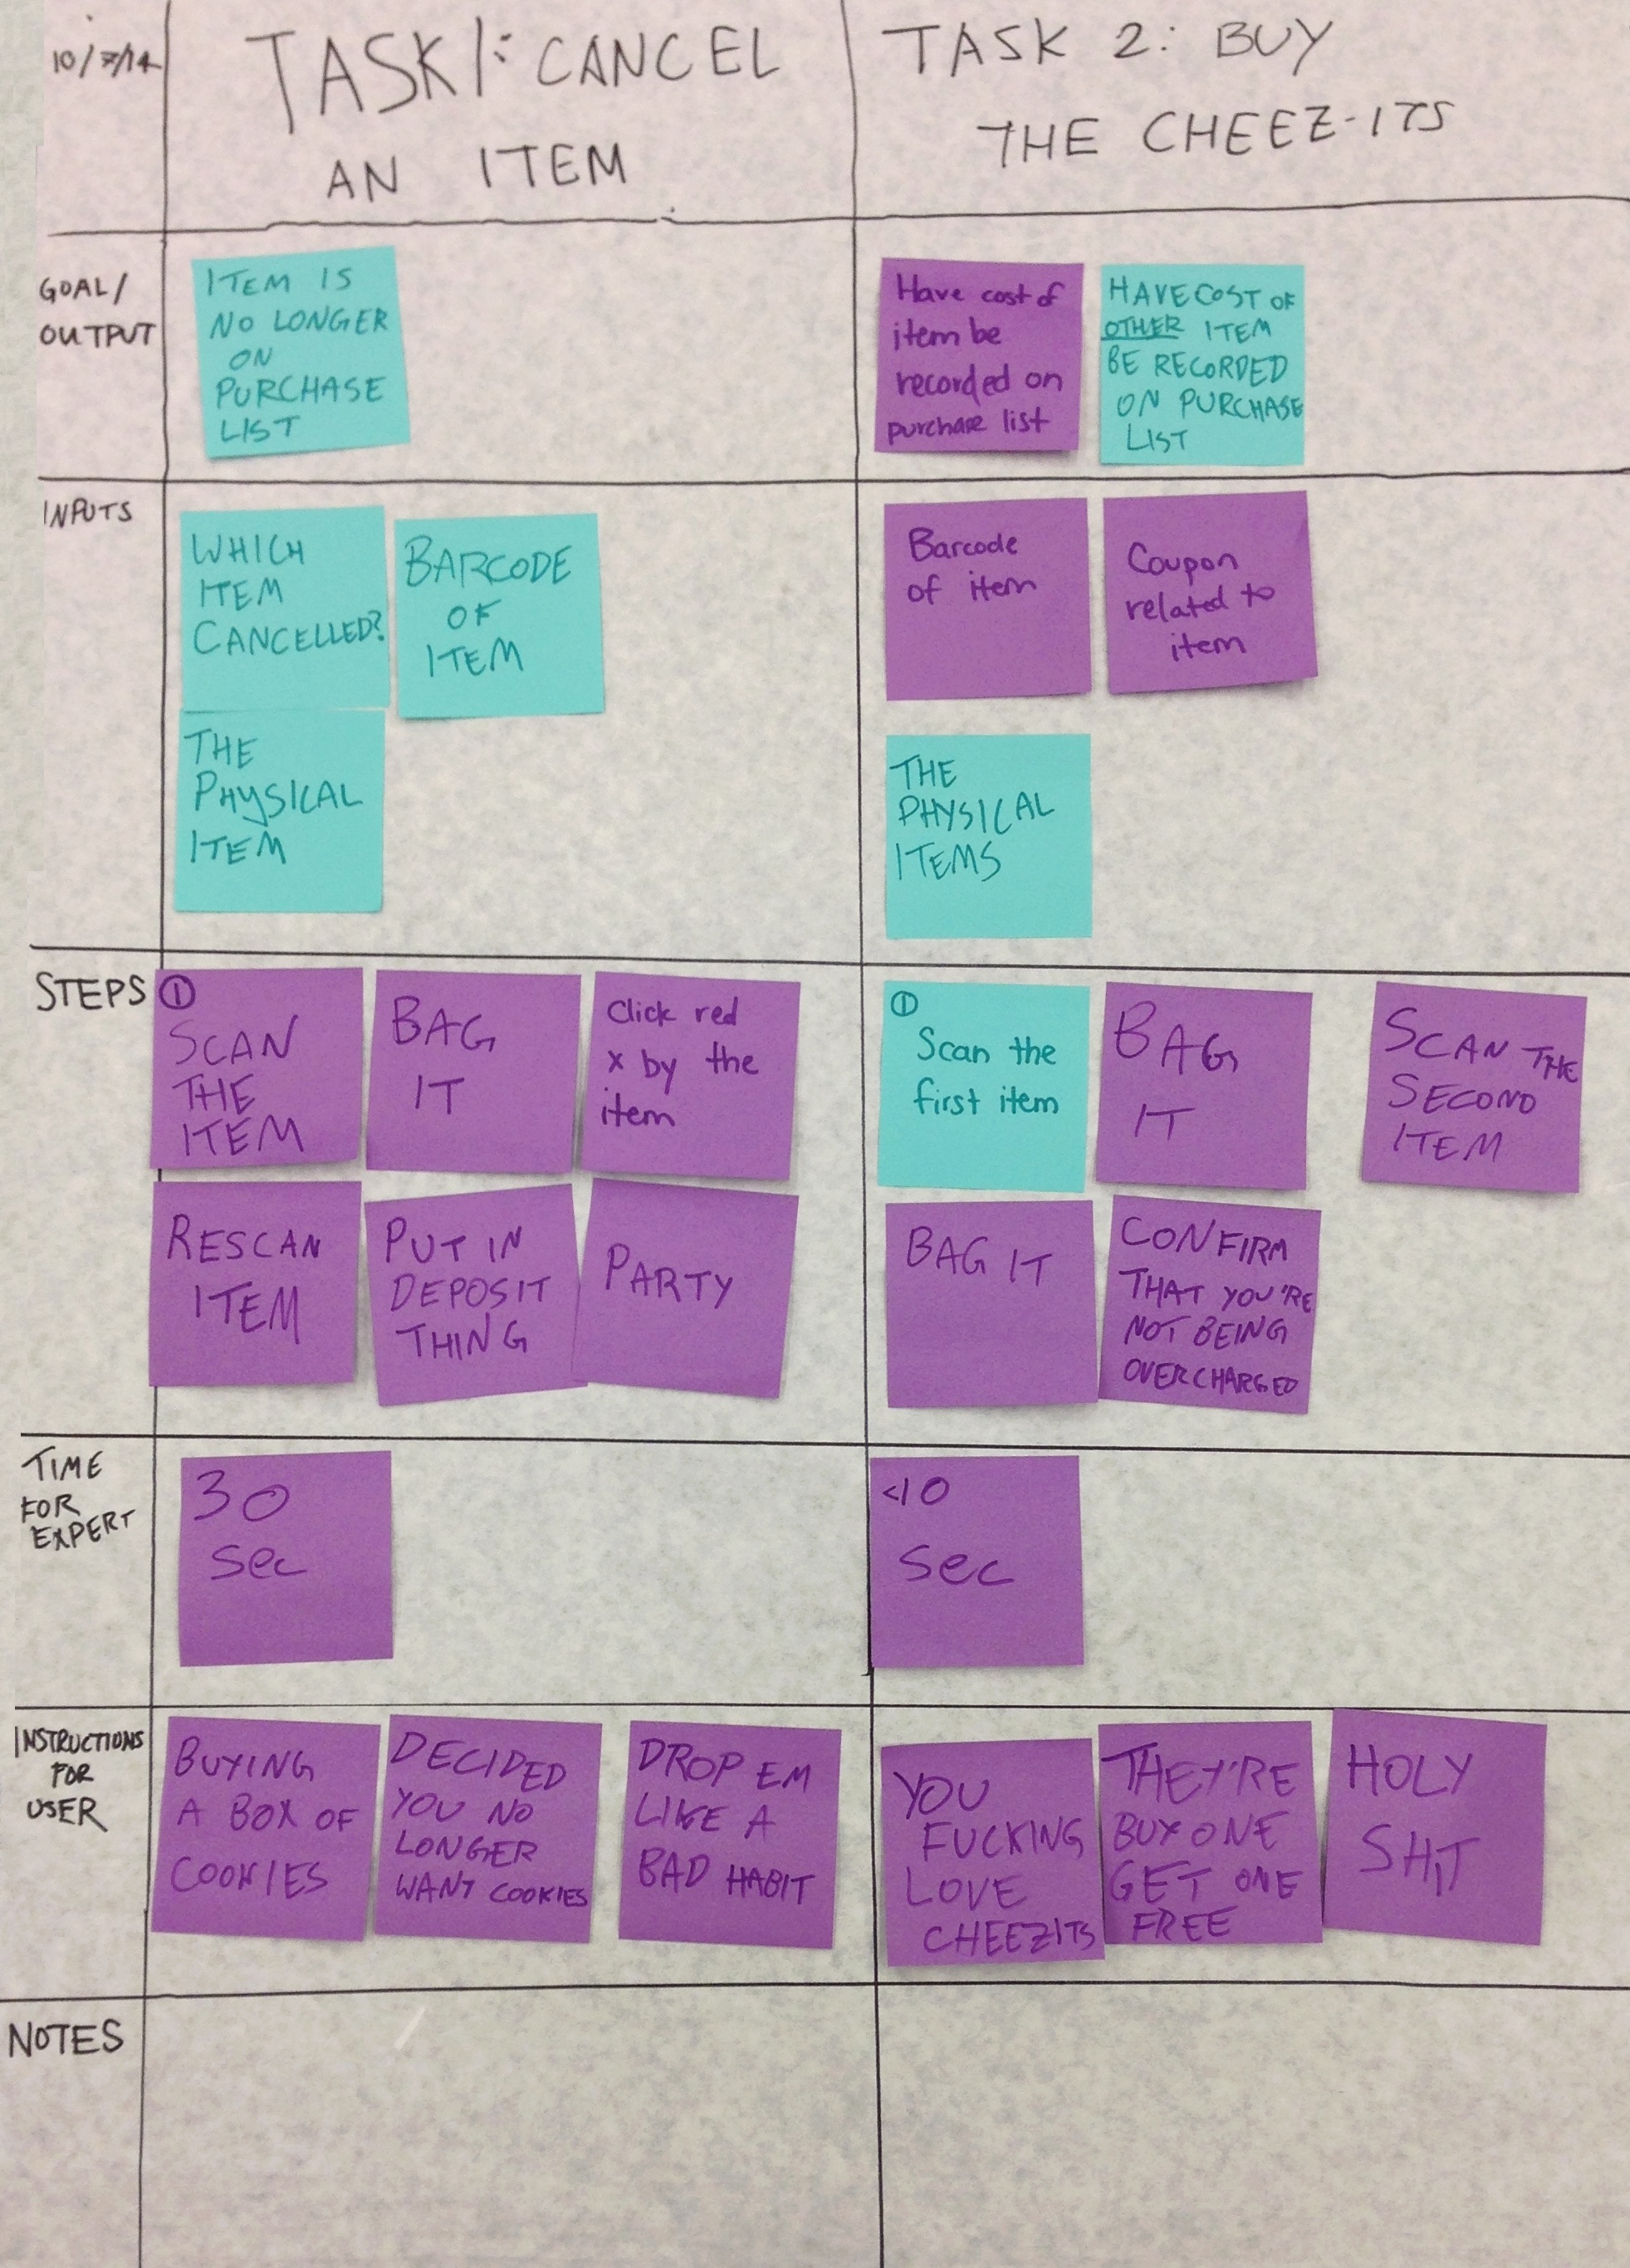 10/7/14
TASK 1: CANCEL
AN ITEM
TASK 2: BUY
THE CHEEZ-ITS
GOAL/
OUTPUT
ITEM IS
NO LONGER
ON
PURCHASE
LIST
Have cost of
item be
recorded on
purchase list
HAVE COST OF
OTHER ITEM
BE RECORDED
ON PURCHASE
LIST
INPUTS
WHICH
ITEM
CANCELLED?
BARCODE
OF
ITEM
THE
PHYSICAL
ITEM
Barcode
of item
Coupon
related to
item
THE
PHYSICAL
ITEMS
STEPS
①
SCAN
THE
ITEM
BAG
IT
Click red
x by the
item
RESCAN
ITEM
PUT IN
DEPOSIT
THING
PARTY
①
Scan the
first item
BAG
IT
SCAN THE
SECOND
ITEM
BAG IT
CONFIRM
THAT YOU'RE
NOT BEING
OVERCHARGED
TIME
FOR
EXPERT
30
sec
<10
sec
INSTRUCTIONS
FOR
USER
BUYING
A BOX OF
COOKIES
DECIDED
YOU NO
LONGER
WANT COOKIES
DROP EM
LIKE A
BAD HABIT
YOU
FUCKING
LOVE
CHEEZITS
THEY'RE
BUY ONE
GET ONE
FREE
HOLY
SHIT
NOTES